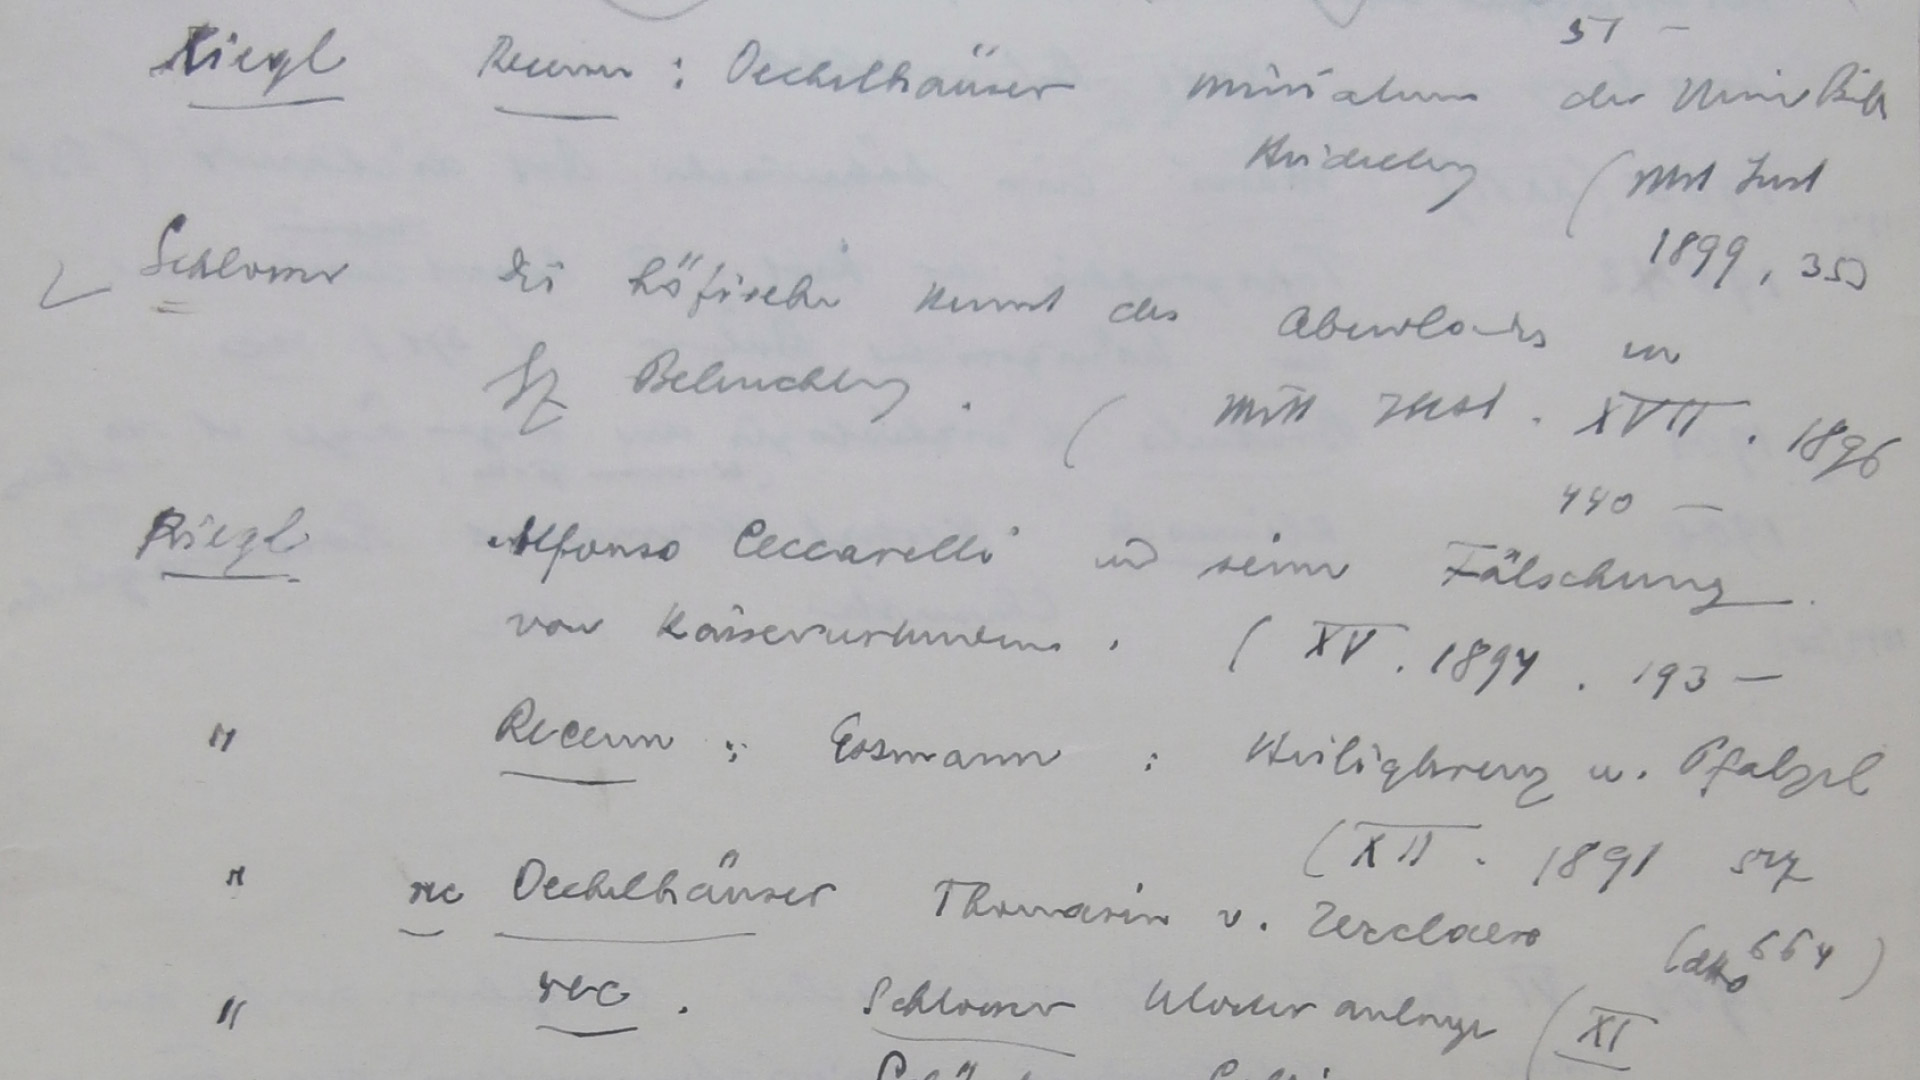 51 —
Riegl Recens : Oechelhäuser Miniaturen der Univ Bibl
Heidelberg ( Mitt Inst
1899, 35
Schlosser Die höfische Kunst des Abendlands in
bz Beleuchtung. ( Mitt Inst. XVII. 1896
440 —
Riegl Alfonso Ceccarelli und seine Fälschung
von Kaiserurkunden. ( XV. 1894. 193 —
" Recens : Essmann : Heiligkreuz u. Pfalzel
( XII. 1891
" rec Oechelhäuser Thomasin v. Zerclaere (dtto 664)
" rec. Schlosser Klosteranlage ( XI